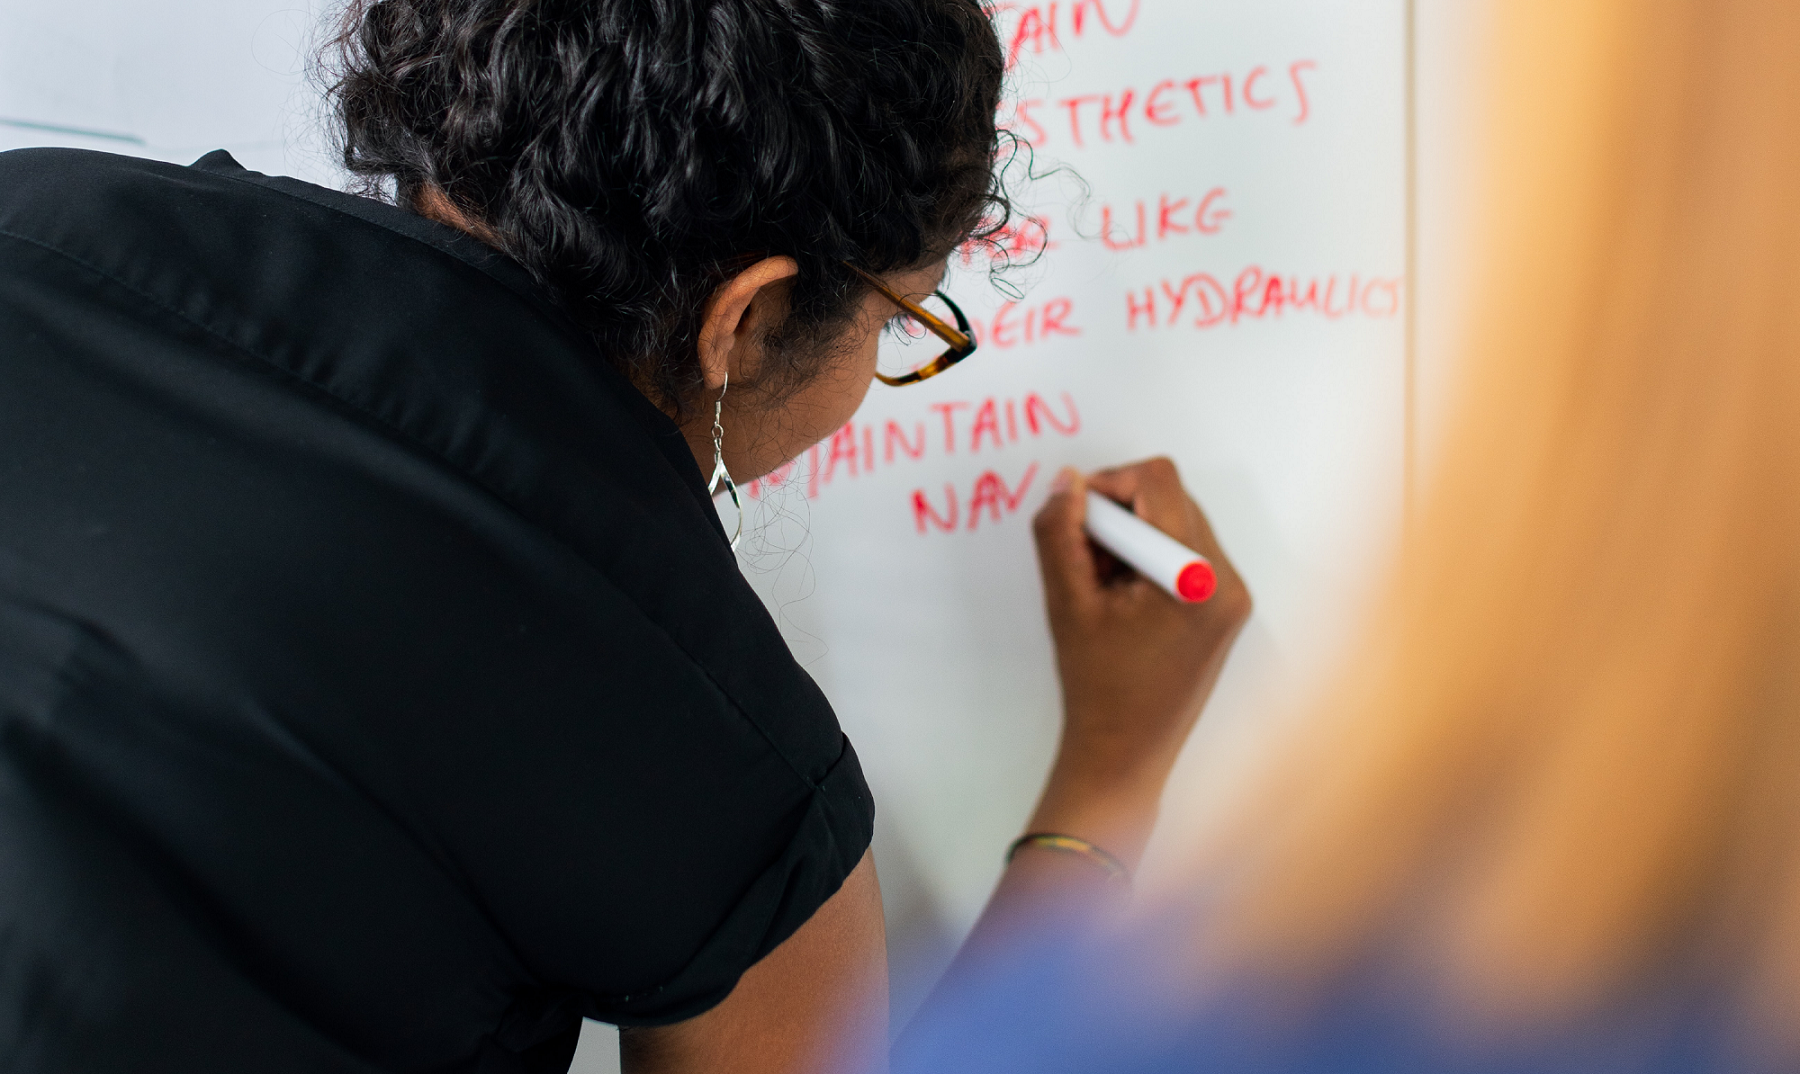 TAIN
ESTHETICS
LIKE
DEIR HYDRAULICS
MAINTAIN
NAV